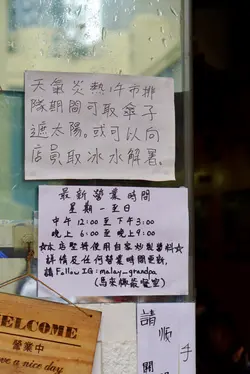 天氣炎熱，于市排
隊期間可取傘子
遮太陽。或可以向
店員取冰水解暑。
最新營業時間
星期一至日
中午 12:00 至 下午 3:00
晚上 6:00 至 晚上 9:00
☆本店堅持使用自家炒製醬料☆
詳情及任何營業時間更新,
請 Follow IG: malay_grandpa
WELCOME
營業中
have a nice day
請順手